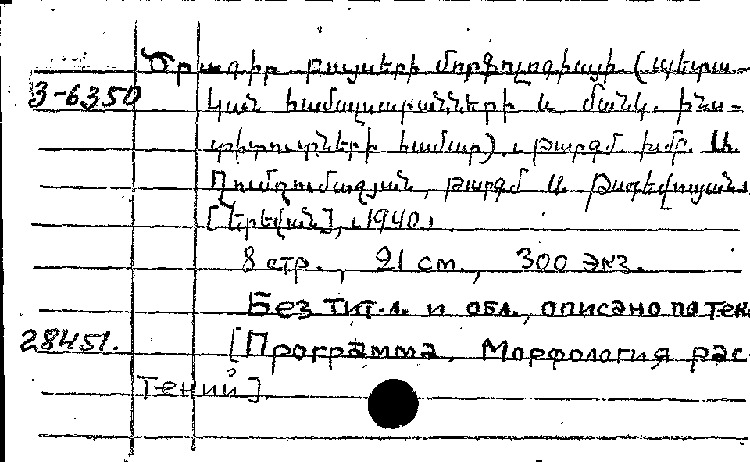 Ծրագիր բույսերի մորֆոլոգիայի (պետա-
3-6350 կան համալսարանների և մանկ. ինս-
տիտուտների համար). թարգմ. խմբ. Ա.
Ղումղումաջյան, թարգմ. Ա. Թադևոսյան.
[Երևան], 1940.
8 стр., 21 см., 300 экз.
Без тит.л. и обл., описано по тек
28451. [Программа. Морфология рас-
тений].